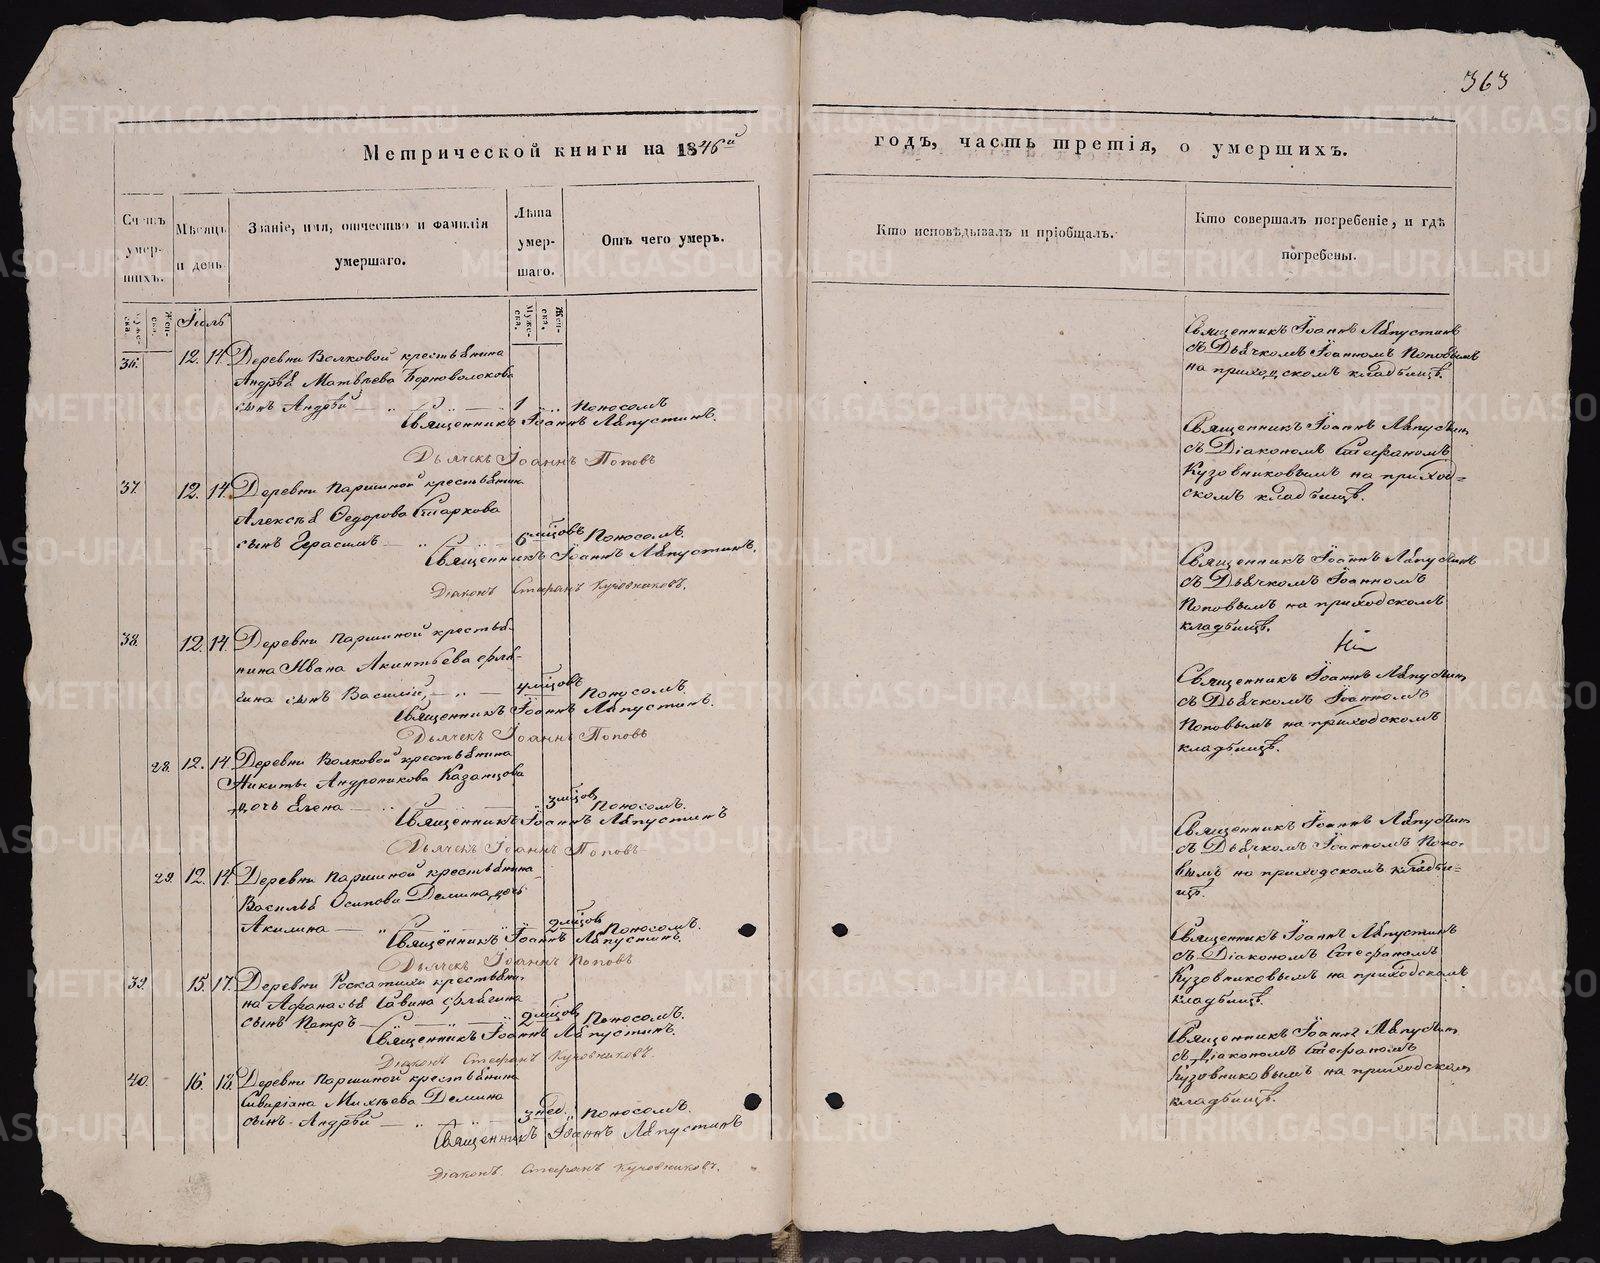 363
Метрической книги на 1846й
годъ, часть третія, о умершихъ.
Счетъ умер-шихъ.
Мѣсяцъ и день
Званіе, имя, отчество и фамилія умершаго.
Лѣта умер-шаго.
Отъ чего умеръ.
Кто исповѣдывалъ и пріобщалъ.
Кто совершалъ погребеніе, и гдѣ погребены.
Муже-ска.
Жен-ска.
Муже-ска.
Жен-ска.
Іюль
36. 12. 14. Деревни Волковой крестьянина
Андрѣя Матвѣева Черноволокова
сынъ Андрѣй — „ — 1 „ Поносомъ
Священникъ Іоаннъ Ляпустинъ.
Дьячекъ Іоаннъ Поповъ
Священникъ Іоаннъ Ляпустинъ
съ Дьячкомъ Іоанномъ Поповымъ
на приходскомъ кладбищѣ.
37. 12. 14. Деревни Паршиной крестьянина
Алексѣя Ѳедорова Старкова
сынъ Герасимъ — „ — 6 мѣсцовъ Поносомъ.
Священникъ Іоаннъ Ляпустинъ.
Діаконъ Стефанъ Кузовниковъ.
Священникъ Іоаннъ Ляпустинъ
съ Діакономъ Стефаномъ
Кузовниковымъ на приход=
скомъ кладбищѣ.
38. 12. 14. Деревни Паршиной крестья-
нина Ивана Акинтьева Фля-
гина сынъ Василій, — „ — 4 мѣсцовъ Поносомъ.
Священникъ Іоаннъ Ляпустинъ.
Дьячекъ Іоаннъ Поповъ
Священникъ Іоаннъ Ляпустинъ
съ Дьячкомъ Іоанномъ
Поповымъ на приходскомъ
кладбищѣ.
28. 12. 14. Деревни Волковой крестьянина
Никиты Андроникова Казанцова
дочь Елена — „ — 3 мѣсцов Поносомъ.
Священникъ Іоаннъ Ляпустинъ
Дьячекъ Іоаннъ Поповъ
Священникъ Іоаннъ Ляпустинъ
съ Дьячкомъ Іоанномъ
Поповымъ на приходскомъ
кладбищѣ.
29. 12. 14. Деревни Паршиной крестьянина
Василья Осипова Демина дочь
Акилина — „ — „ 2 мѣсцов Поносомъ.
Священникъ Іоаннъ Ляпустинъ.
Дьячекъ Іоаннъ Поповъ
Священникъ Іоаннъ Ляпустинъ
съ Дьячкомъ Іоанномъ Попо-
вымъ на приходскомъ кладби=
щѣ.
39. 15. 17. Деревни Роскатихи крестьяни-
на Афанасья Савина Флягина
сынъ Петръ — „ — 2 мѣсцов Поносомъ.
Священникъ Іоаннъ Ляпустинъ.
Діаконъ Стефанъ Кузовниковъ.
Священникъ Іоаннъ Ляпустинъ
съ Діакономъ Стефаномъ
Кузовниковымъ на приходскомъ
кладбищѣ.
40. 16. 18. Деревни Паршиной крестьянина
Сивиріана Михѣева Демина
сынъ Андрѣй — „ — 3 нед. „ Поносомъ.
Священникъ Іоаннъ Ляпустинъ
Діаконъ Стефанъ Кузовниковъ.
Священникъ Іоаннъ Ляпустинъ
съ Діакономъ Стефаномъ
Кузовниковымъ на приходском
кладбищѣ.
METRIKI.GASO-URAL.RU